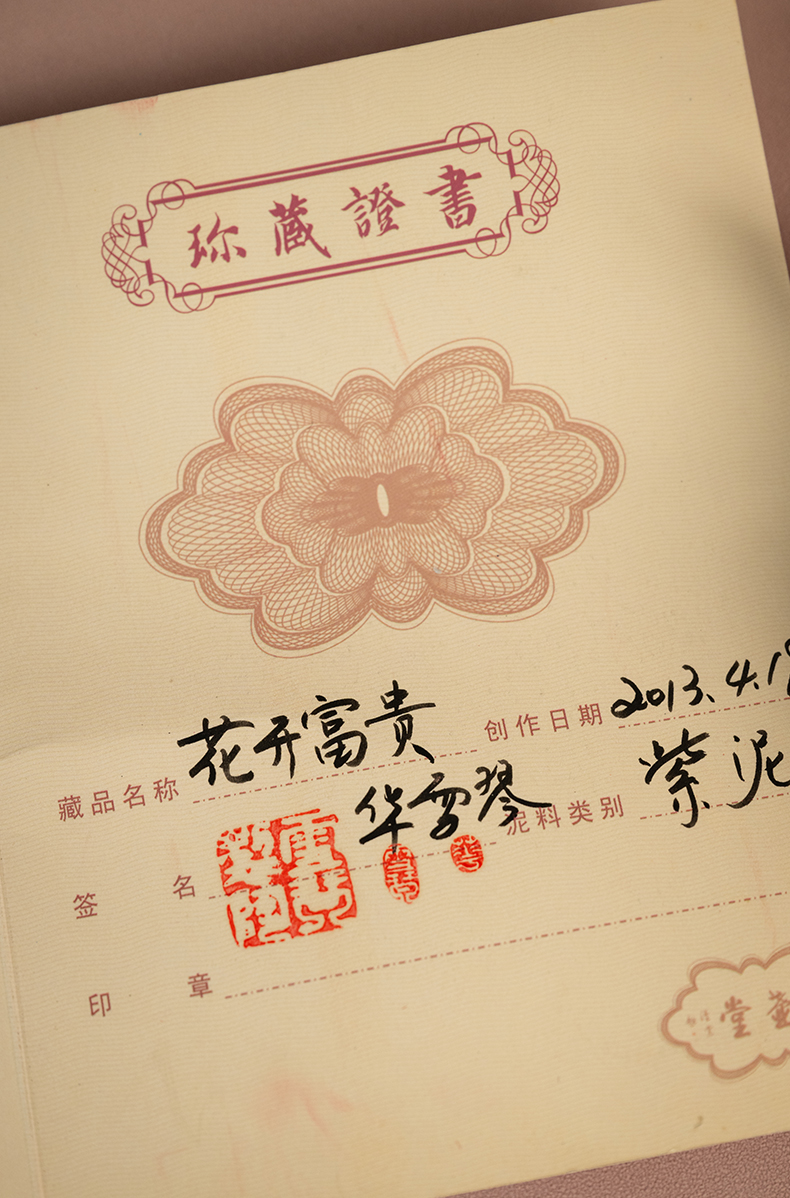 珍藏證書
藏品名称 花开富贵 创作日期 2013.4.1
签名 华雪琴 泥料类别 紫泥
印章
堂